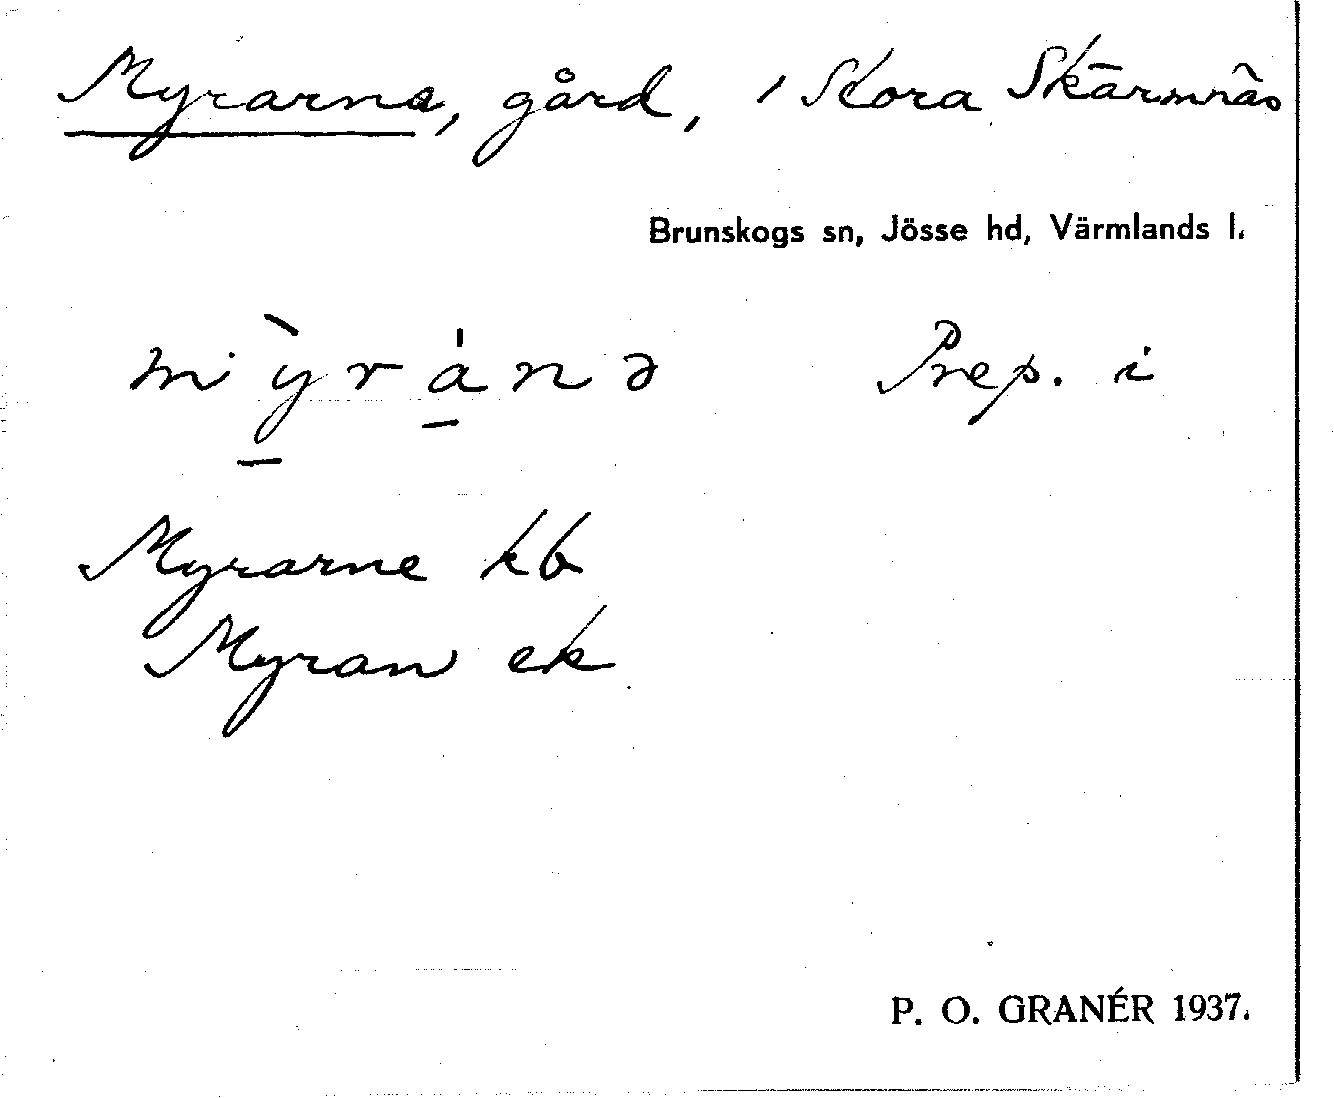 Myrarna, gård, i Stora Skärmnäs
Brunskogs sn, Jösse hd, Värmlands l.
mỳránə Prep. i
Myrarne kb
Myran ek
P. O. GRANÉR 1937.